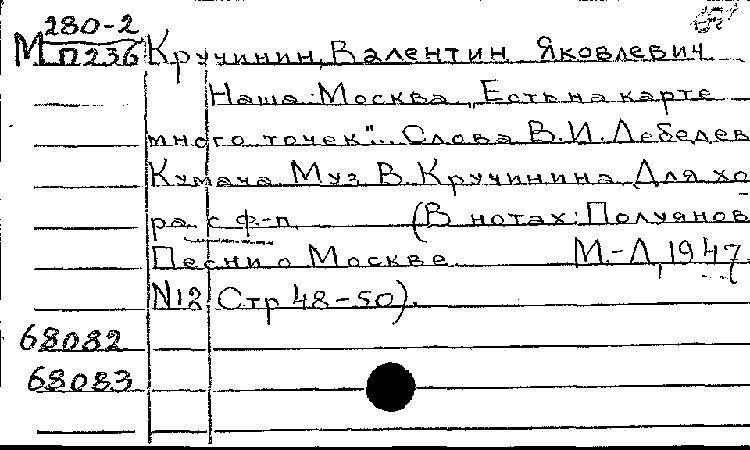 280-2
М П236 Кручинин, Валентин Яковлевич
Наша Москва „Есть на карте
много точек"... Слова В.И. Лебедев
Кумача Муз В. Кручинина Для хо
ра с ф-п. (В нотах: Полуянов
Песни о Москве. М.-Л, 1947
N12 Стр 48-50).
68082
68083